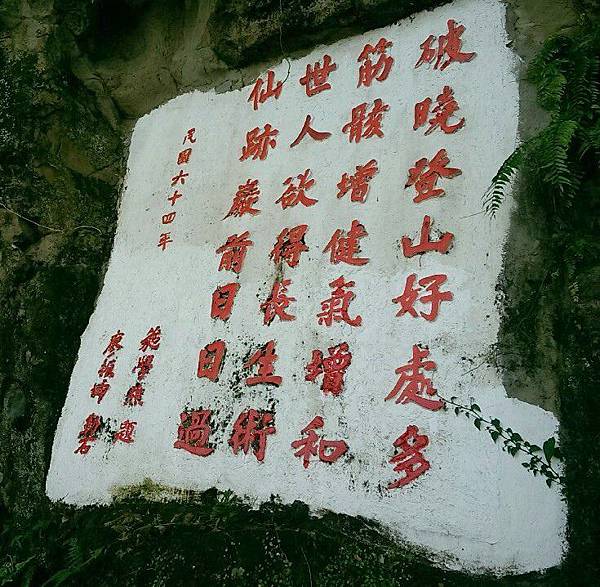 破曉登山好處多
筋骸增健氣增和
世人欲得長生術
仙跡巖前日日過
民國六十四年
范學徽題
廖振坤刻石